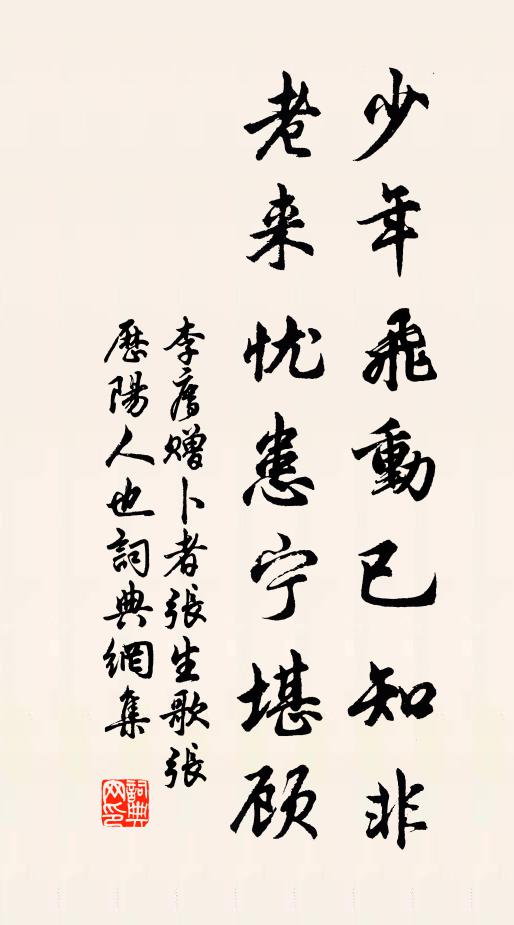 少年飛動已知非
老来忧患宁堪顾
李廌赠卜者張生歌張
歷陽人也詞典網集
詞典网印